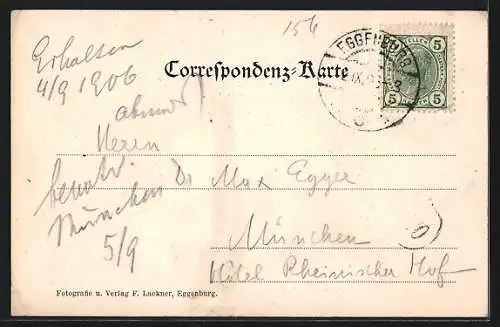 156
Erhalten
4/9 1906
EGGENBURG
5 5
Correspondenz-Karte
Herrn
Dr Max Egger
München
5/9
München
Hôtel Rheinischer Hof
Fotografie u. Verlag F. Lackner, Eggenburg.